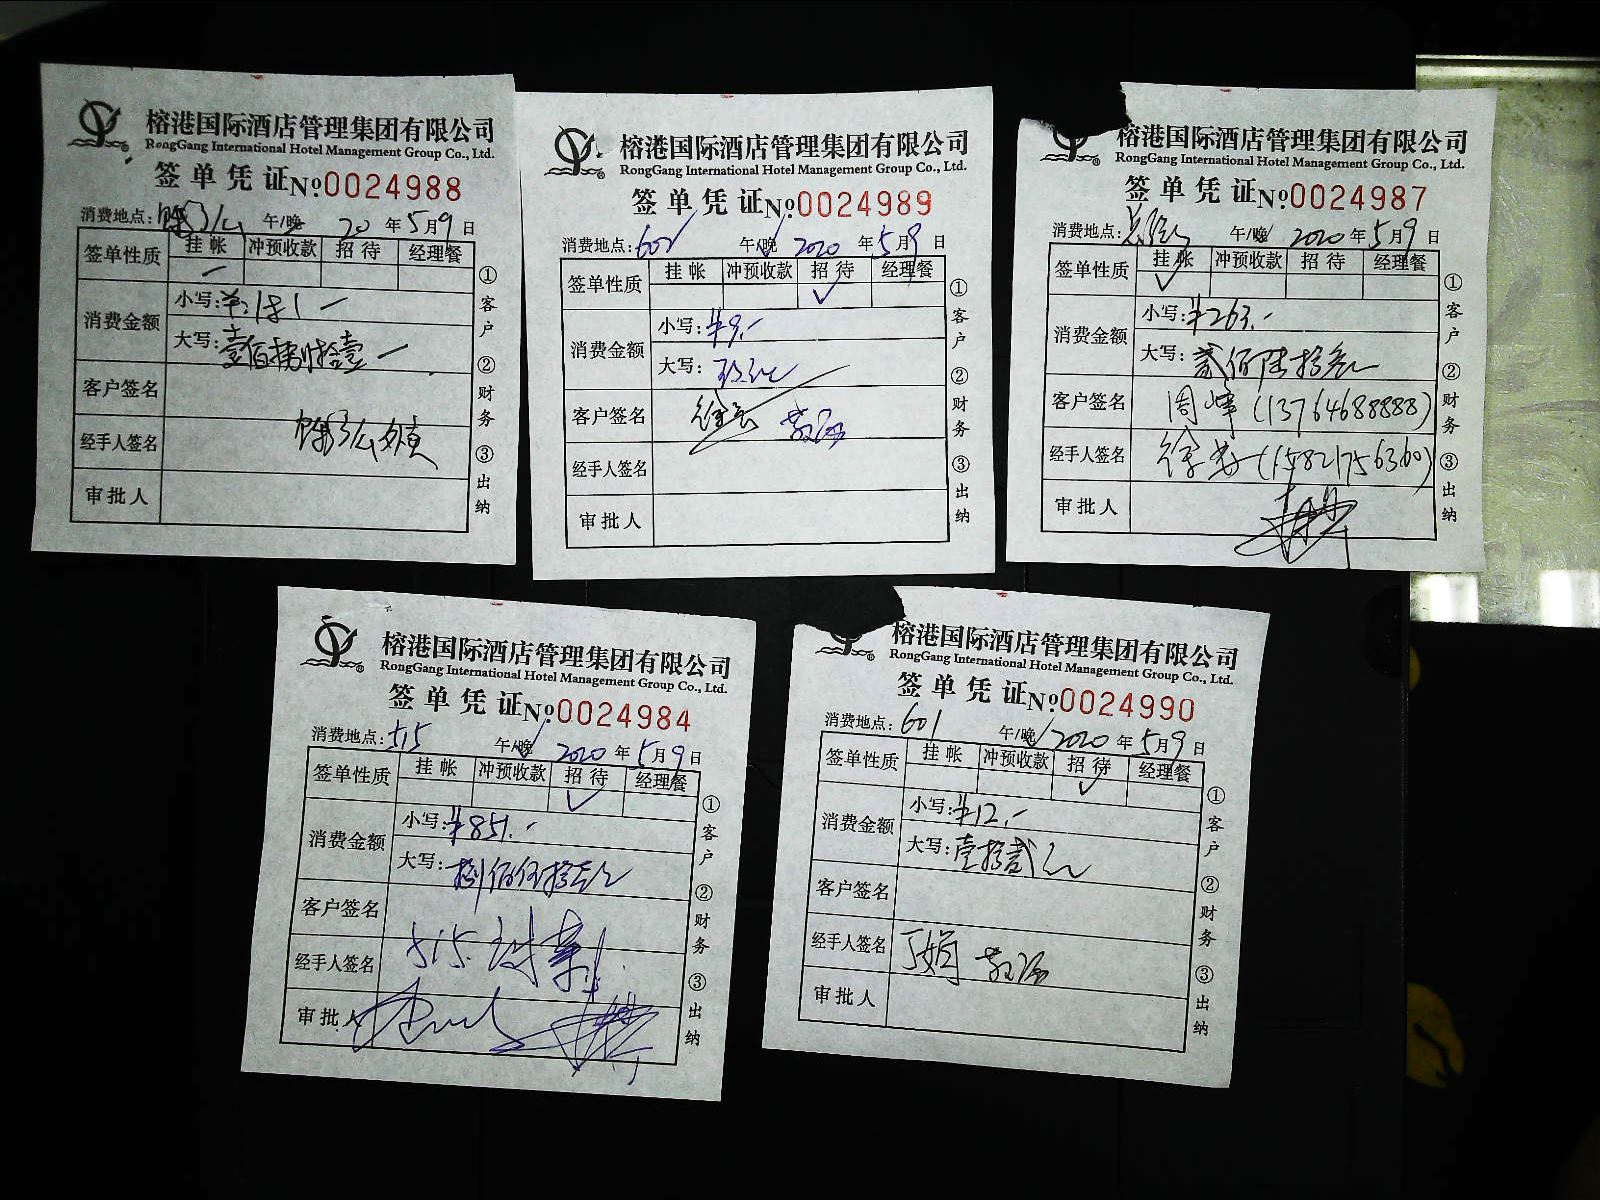 榕港国际酒店管理集团有限公司
RongGang International Hotel Management Group Co., Ltd.
签单凭证 №0024988
消费地点: 午/晚 20 年 5月9日
签单性质 挂帐 冲预收款 招待 经理餐
消费金额 小写:
大写: 壹佰捌拾壹
客户签名
经手人签名
审批人
①客户 ②财务 ③出纳
榕港国际酒店管理集团有限公司
RongGang International Hotel Management Group Co., Ltd.
签单凭证 №0024989
消费地点: 602 午/晚 2020 年 5月9日
签单性质 挂帐 冲预收款 招待 经理餐
✓
消费金额 小写: ¥9.-
大写: 玖元
客户签名
经手人签名
审批人
①客户 ②财务 ③出纳
榕港国际酒店管理集团有限公司
RongGang International Hotel Management Group Co., Ltd.
签单凭证 №0024987
消费地点: 午/晚 2020 年 5月9日
签单性质 挂帐 冲预收款 招待 经理餐
✓
消费金额 小写: ¥263.-
大写: 贰佰陆拾叁元
客户签名 周峰(13764688888)
经手人签名 (15821756360)
审批人
①客户 ②财务 ③出纳
榕港国际酒店管理集团有限公司
RongGang International Hotel Management Group Co., Ltd.
签单凭证 №0024984
消费地点: 515 午/晚 2020 年 5月9日
签单性质 挂帐 冲预收款 招待 经理餐
✓
消费金额 小写: ¥851.-
大写: 捌佰伍拾壹元
客户签名
经手人签名 515
审批人
①客户 ②财务 ③出纳
榕港国际酒店管理集团有限公司
RongGang International Hotel Management Group Co., Ltd.
签单凭证 №0024990
消费地点: 601 午/晚 2020 年 5月9日
签单性质 挂帐 冲预收款 招待 经理餐
✓
消费金额 小写: ¥12.-
大写: 壹拾贰元
客户签名
经手人签名 丁娟
审批人
①客户 ②财务 ③出纳